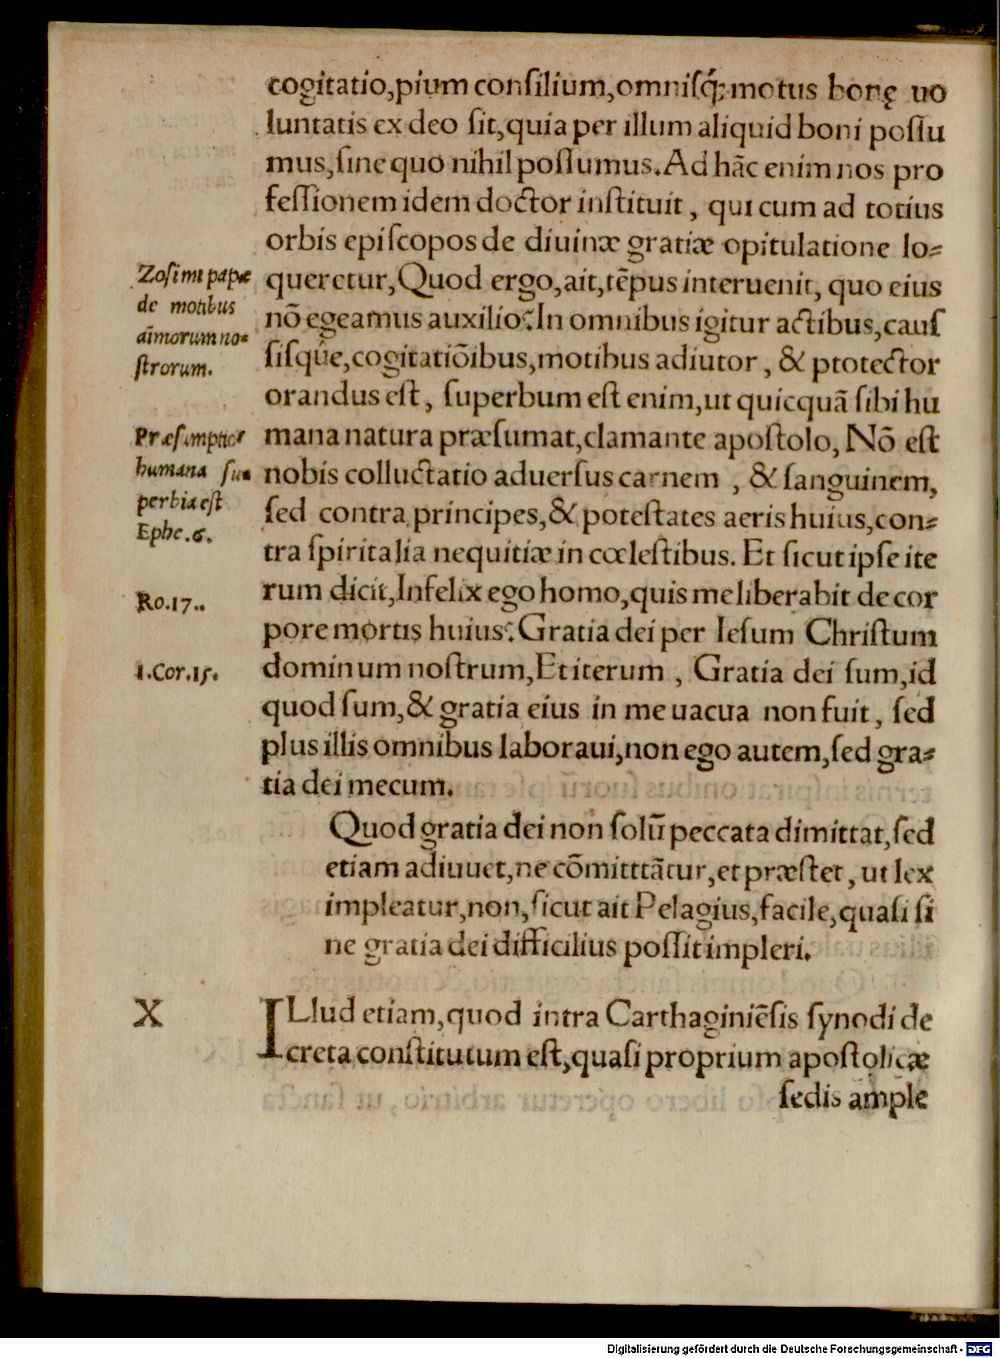 cogitatio,pium conſilium,omniſq́; motus bonę uo
luntatis ex deo ſit,quia per illum aliquid boni poſſu
mus,ſine quo nihil poſſumus.Ad hāc enim nos pro
feſſionem idem doctor inſtituit, qui cum ad totius
orbis epiſcopos de diuinæ gratiæ opitulatione lo-
Zoſimi papæ
de motibus
aīmorum no-
ſtrorum.
queretur,Quod ergo,ait,tēpus interuenit, quo eius
nō egeamus auxilio?In omnibus igitur actibus,cauſ
ſiſque,cogitatiōibus,motibus adiutor, & protector
orandus eſt, ſuperbum eſt enim,ut quicquā ſibi hu
Præſumptior
humana ſu-
perbia eſt
Ephe.6.
mana natura præſumat,clamante apoſtolo, Nō eſt
nobis colluctatio aduerſus carnem , & ſanguinem,
ſed contra principes,& poteſtates aeris huius,con-
tra ſpiritalia nequitiæ in cœleſtibus. Et ſicut ipſe ite
Ro.17..
rum dicit,Infelix ego homo,quis me liberabit de cor
pore mortis huius?Gratia dei per Ieſum Chriſtum
1.Cor.15.
dominum noſtrum,Et iterum , Gratia dei ſum,id
quod ſum,& gratia eius in me uacua non fuit, ſed
plus illis omnibus laboraui,non ego autem,ſed gra-
tia dei mecum.
Quod gratia dei non ſolū peccata dimittat,ſed
etiam adiuuet,ne cōmitttātur,et præſtet, ut lex
impleatur,non,ſicut ait Pelagius,facile,quaſi ſi
ne gratia dei difficilius poſſit impleri.
X
ILlud etiam,quod intra Carthaginiēſis ſynodi de
creta conſtitutum eſt,quaſi proprium apoſtolicæ
ſedis ample
Digitalisierung gefördert durch die Deutsche Forschungsgemeinschaft - DFG